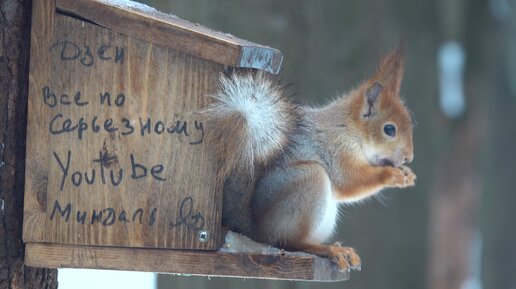 Дзен
Все по
Серьезному
YouTube
Миндаль